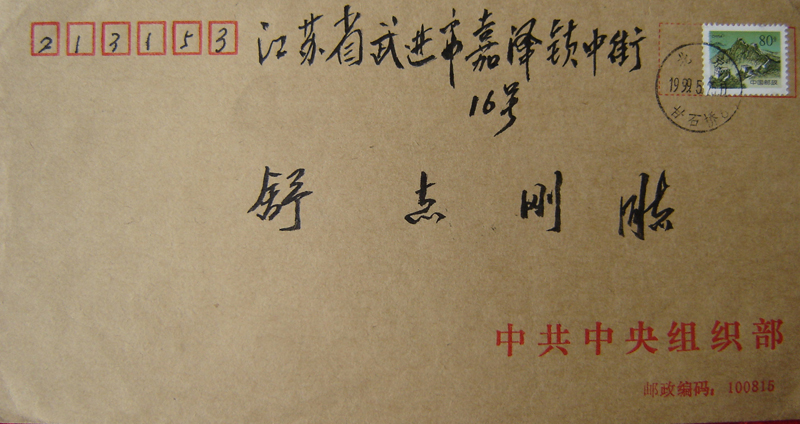 213153 江苏省武进市嘉泽镇中街
16号
舒志刚
80分
中国邮政
1999.5
中共中央组织部
邮政编码：100815